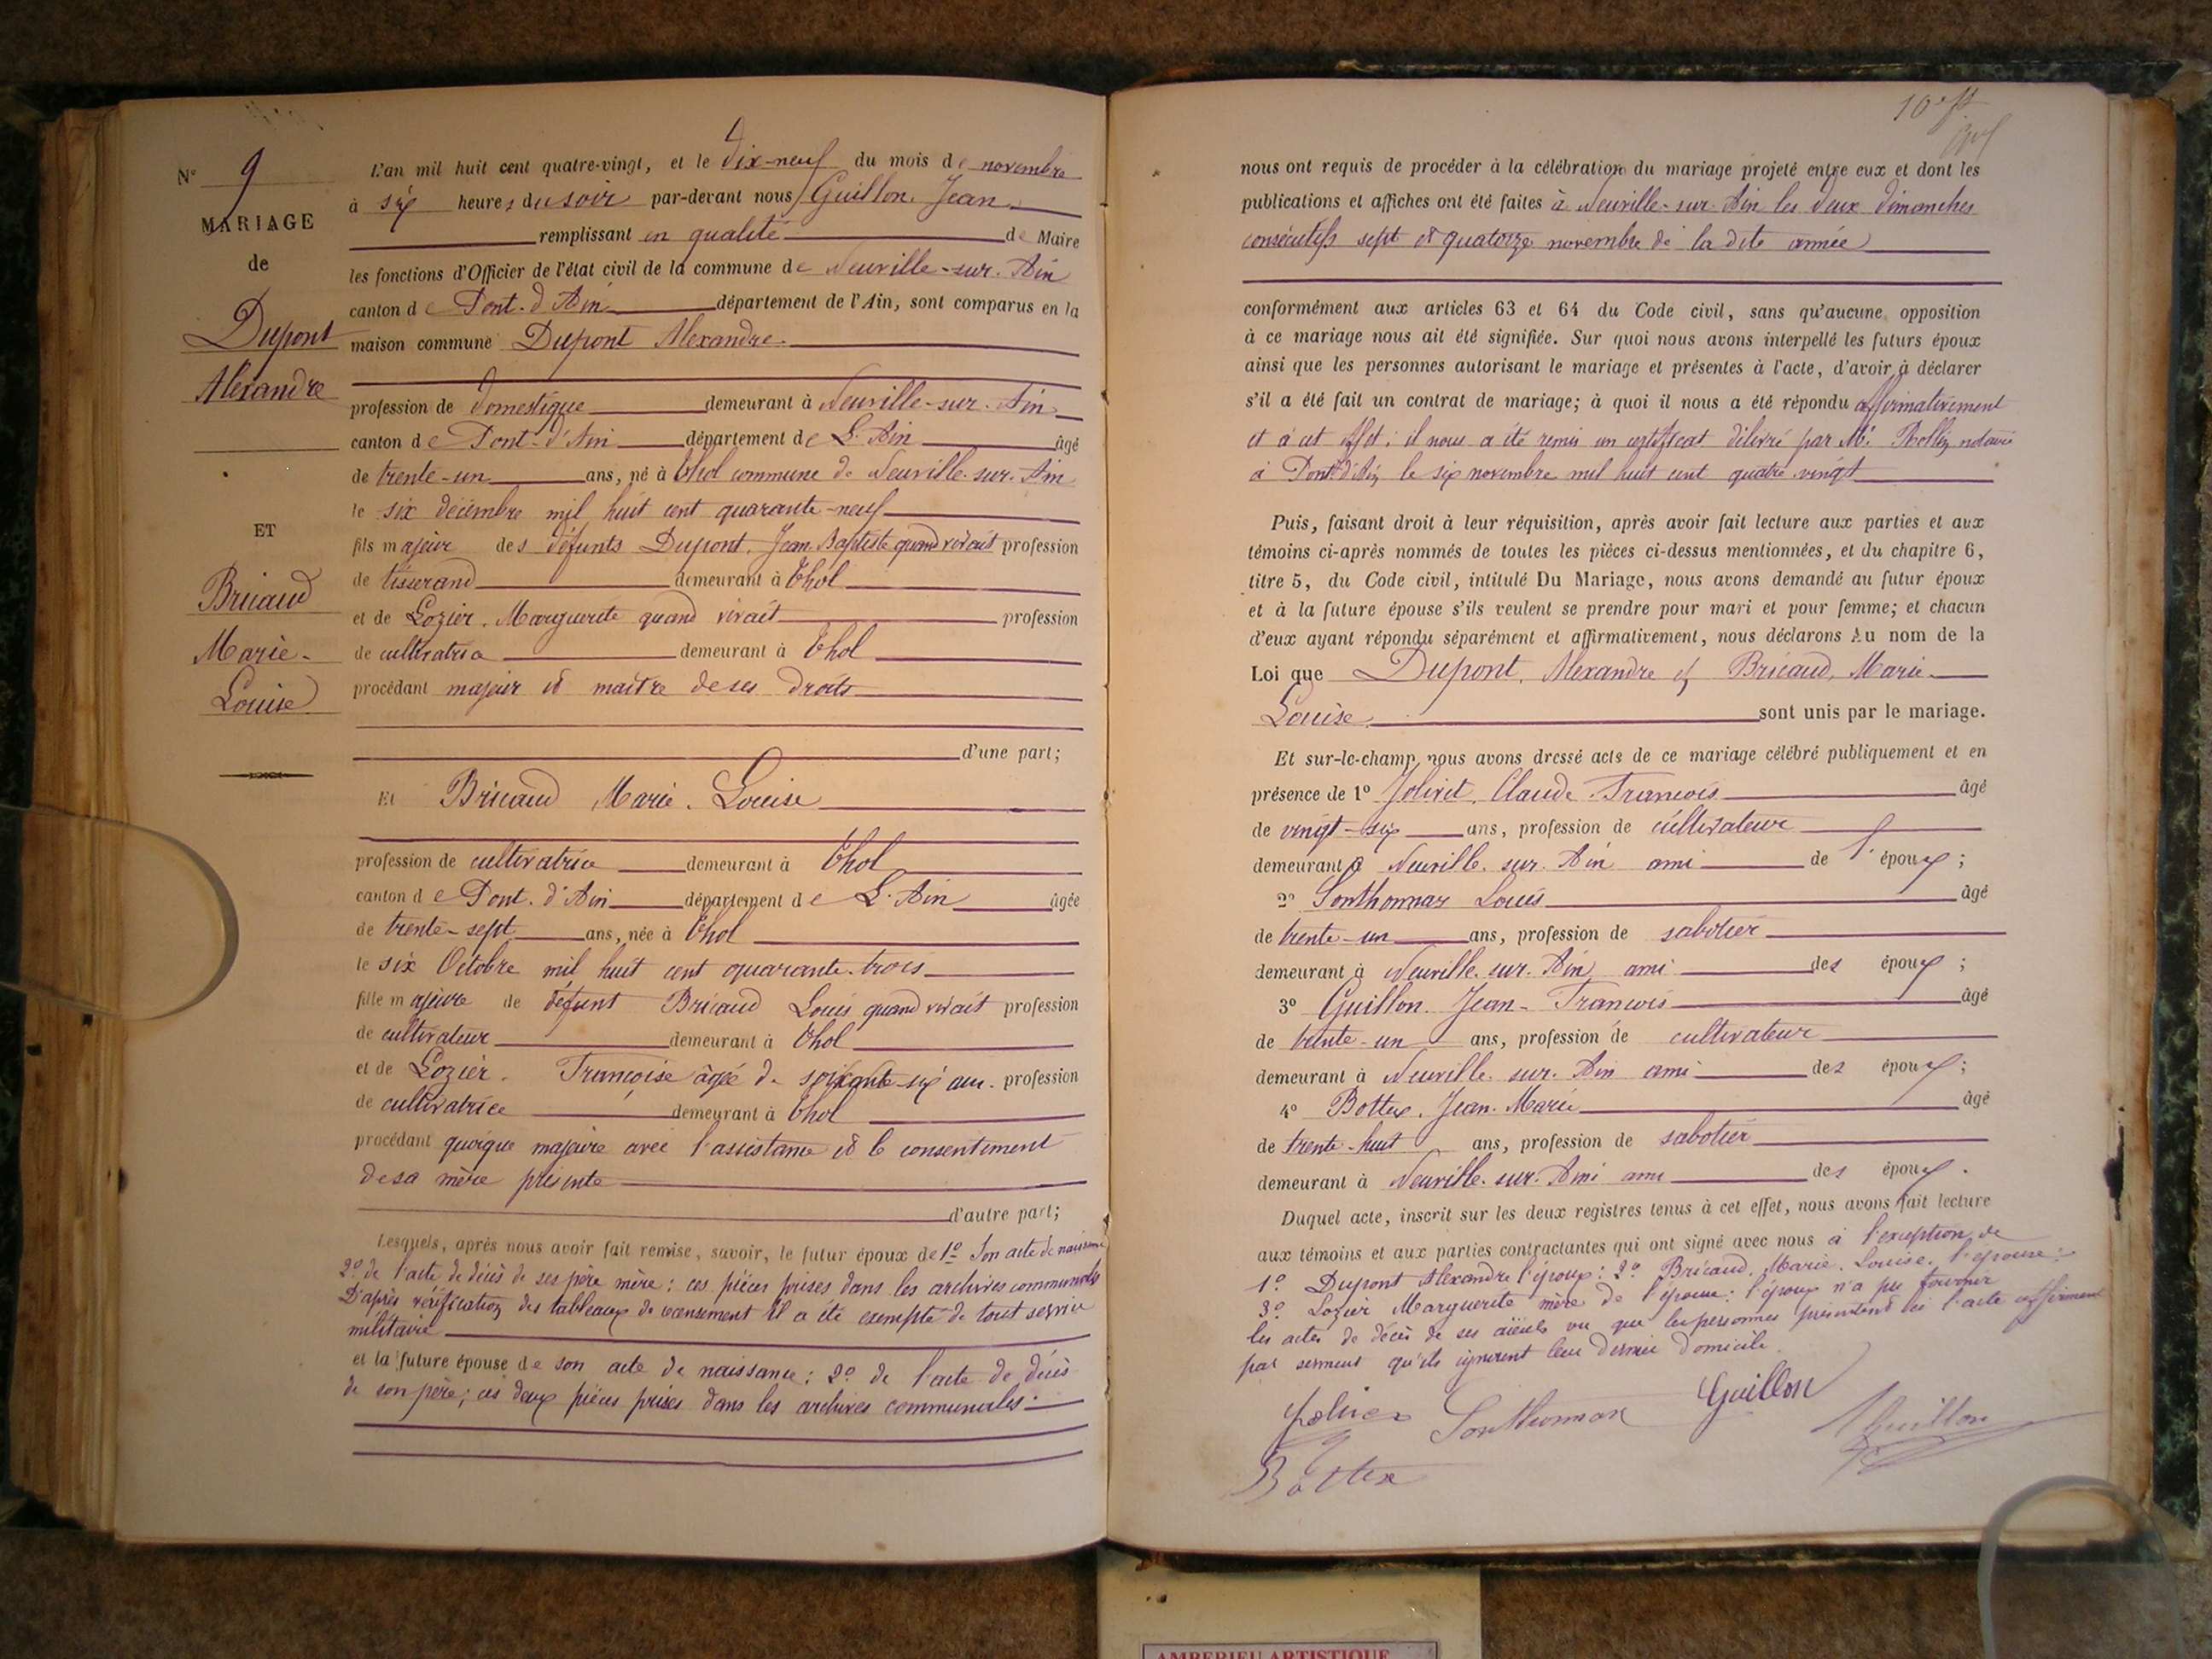 N° 9
MARIAGE
de
Dupont
Alexandre
ET
Bricaud
Marie-
Louise
L'an mil huit cent quatre-vingt, et le dix-neuf du mois de novembre
à six heures du soir par-devant nous Guillon, Jean
remplissant en qualité de Maire
les fonctions d'Officier de l'état civil de la commune de Neuville-sur-Ain
canton de Pont-d'Ain département de l'Ain, sont comparus en la
maison commune Dupont Alexandre
profession de domestique demeurant à Neuville-sur-Ain
canton de Pont-d'Ain département de L'Ain âgé
de trente-un ans, né à Thol commune de Neuville-sur-Ain
le six décembre mil huit cent quarante-neuf
fils majeur des défunts Dupont, Jean Baptiste quand vivait profession
de tisserand demeurant à Thol
et de Lozier, Marguerite quand vivait profession
de cultivatrice demeurant à Thol
procédant majeur et maître de ses droits
d'une part;
Et Bricaud Marie-Louise
profession de cultivatrice demeurant à Thol
canton de Pont-d'Ain département de L'Ain âgée
de trente-sept ans, née à Thol
le six Octobre mil huit cent quarante-trois
fille majeure de défunt Bricaud Louis quand vivait profession
de cultivateur demeurant à Thol
et de Lozier, Françoise âgée de soixante-six ans - profession
de cultivatrice demeurant à Thol
procédant quoique majeure avec l'assistance et le consentement
de sa mère présente
d'autre part;
Lesquels, après nous avoir fait remise, savoir, le futur époux de 1° Son acte de naissance
2° de l'acte de décès de ses père mère: ces pièces prises dans les archives communales
D'après vérification des tableaux de recensement il a été exempté de tout service
militaire
et la future épouse de son acte de naissance: 2° de l'acte de décès
de son père; ces deux pièces prises dans les archives communales.
nous ont requis de procéder à la célébration du mariage projeté entre eux et dont les
publications et affiches ont été faites à Neuville-sur-Ain les deux dimanches
consécutifs sept et quatorze novembre de la dite année
conformément aux articles 63 et 64 du Code civil, sans qu'aucune opposition
à ce mariage nous ait été signifiée. Sur quoi nous avons interpellé les futurs époux
ainsi que les personnes autorisant le mariage et présentes à l'acte, d'avoir à déclarer
s'il a été fait un contrat de mariage; à quoi il nous a été répondu affirmativement
et à cet effet; il nous a été remis un certificat délivré par Me notaire
à Pont-d'Ain le six novembre mil huit cent quatre-vingt
Puis, faisant droit à leur réquisition, après avoir fait lecture aux parties et aux
témoins ci-après nommés de toutes les pièces ci-dessus mentionnées, et du chapitre 6,
titre 5, du Code civil, intitulé Du Mariage, nous avons demandé au futur époux
et à la future épouse s'ils veulent se prendre pour mari et pour femme; et chacun
d'eux ayant répondu séparément et affirmativement, nous déclarons Au nom de la
Loi que Dupont, Alexandre et Bricaud, Marie-
Louise sont unis par le mariage.
Et sur-le-champ nous avons dressé acte de ce mariage célébré publiquement et en
présence de 1° Jolivet, Claude-François âgé
de vingt-six ans, profession de cultivateur
demeurant à Neuville-sur-Ain ami de l'époux;
2° Sonthonnax Louis âgé
de trente-un ans, profession de sabotier
demeurant à Neuville-sur-Ain ami des époux;
3° Guillon, Jean-François âgé
de trente-un ans, profession de cultivateur
demeurant à Neuville-sur-Ain ami des époux;
4° Bottex, Jean-Marie âgé
de trente-huit ans, profession de sabotier
demeurant à Neuville-sur-Ain ami des époux.
Duquel acte, inscrit sur les deux registres tenus à cet effet, nous avons fait lecture
aux témoins et aux parties contractantes qui ont signé avec nous à l'exception de
1° Dupont Alexandre l'époux: 2° Bricaud, Marie-Louise, l'épouse:
3° Lozier Marguerite mère de l'épouse: l'époux n'a pu fournir
les actes de décès de ses aïeuls vu que les personnes présentes à l'acte affirment
par serment qu'ils ignorent leur dernier domicile.
Sonthonnax Guillon
Guillon
Bottex
AMBERIEU ARTISTIQUE